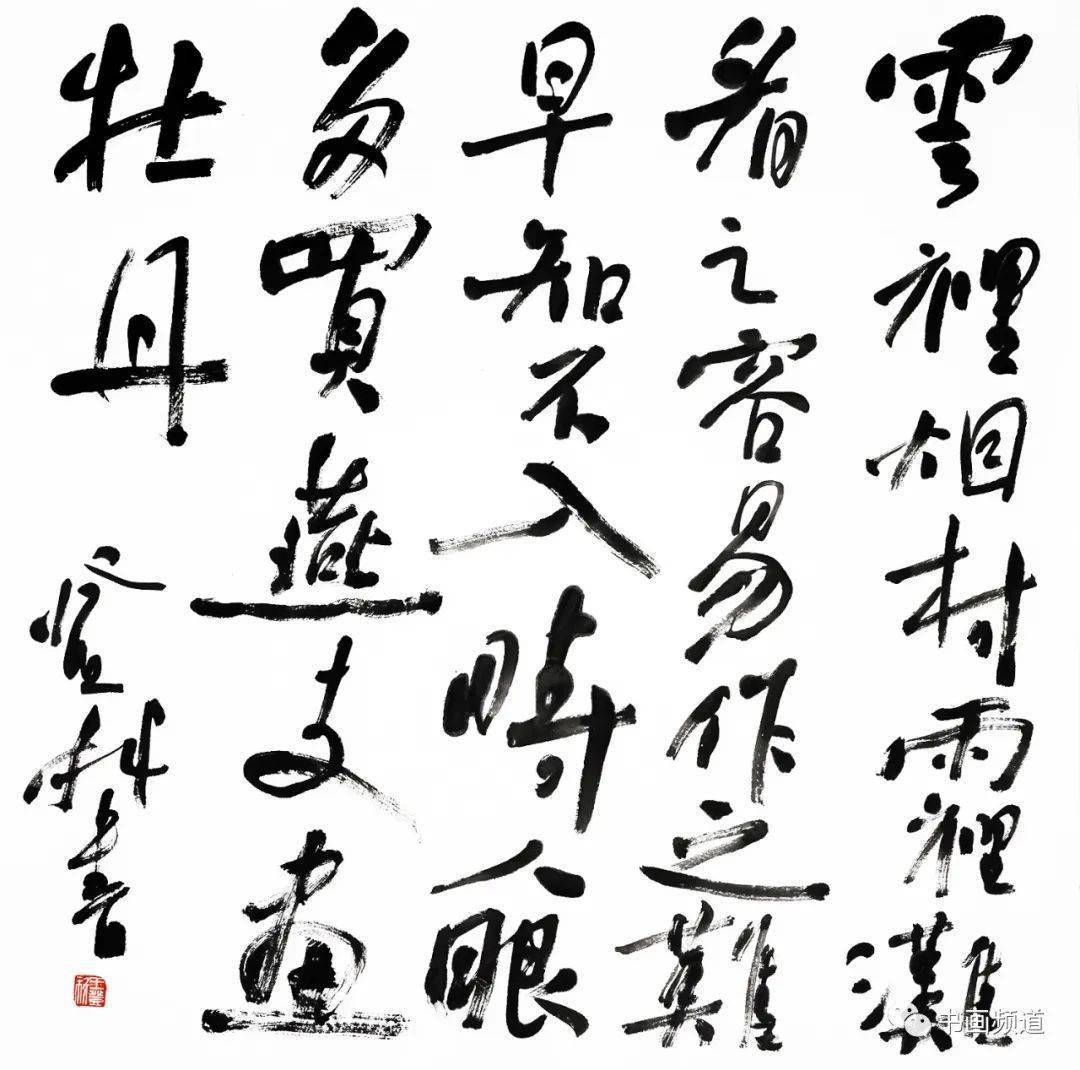 雲裡烟村雨裡灘
看之容易作之難
早知不入時人眼
多買燕支畫
牡丹
登科書
书画频道